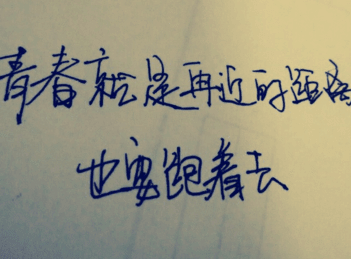 青春就是再近的路
也要跑着去